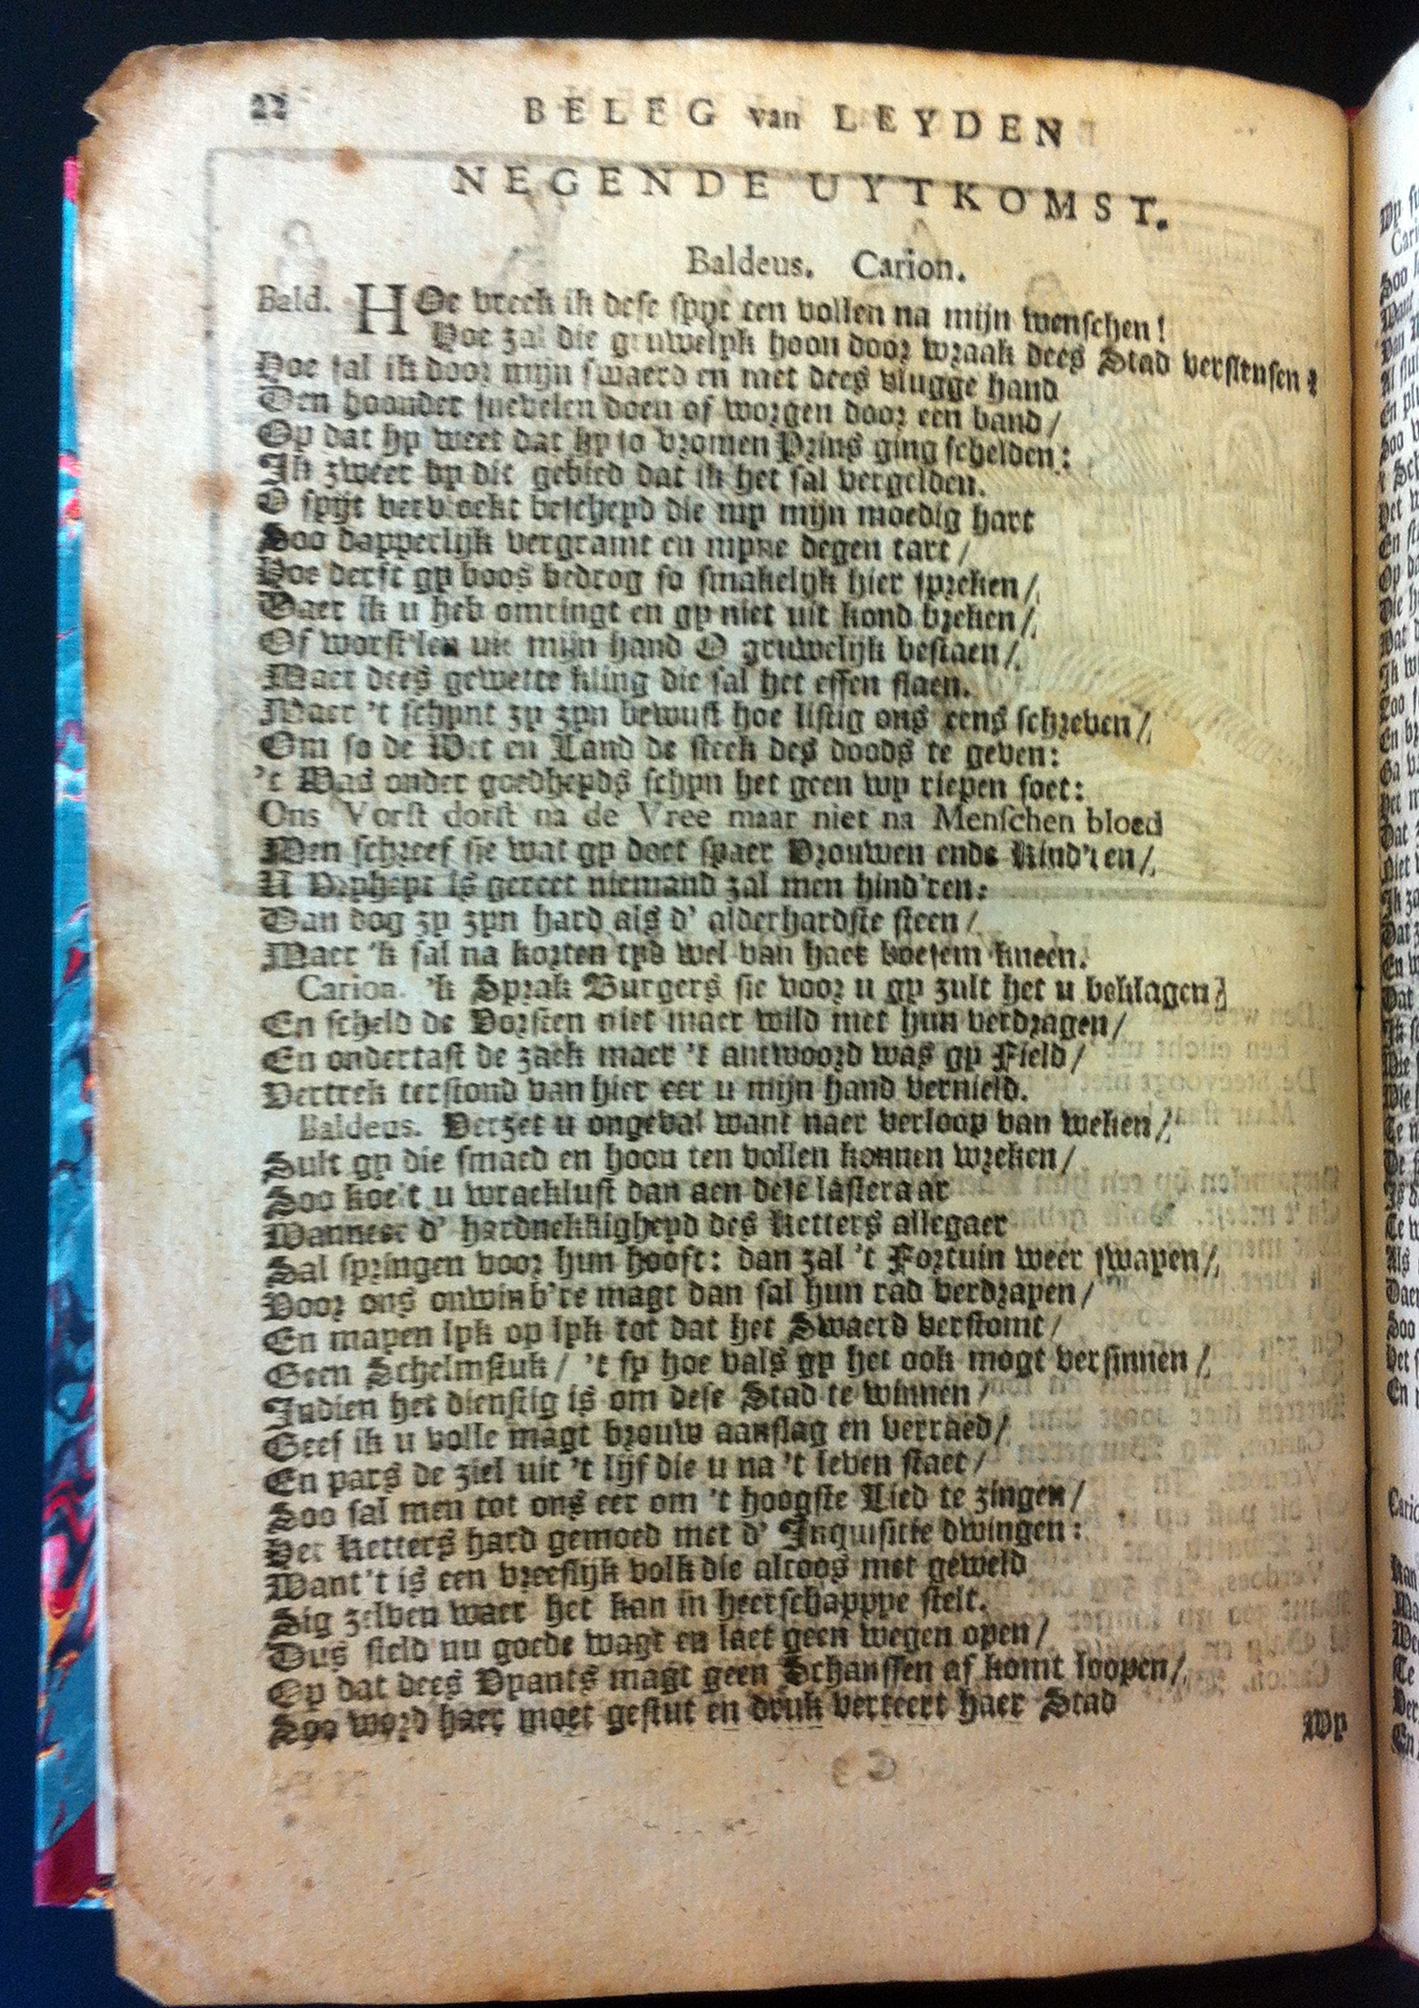 22 BELEG van LEYDEN
NEGENDE UYTKOMST.
Baldeus. Carion.
Bald. HOe vreek ik dese spyt ten vollen na mijn wenschen!
Hoe zal die gruwelyk hoon door wraak dees Stad verslensen!
Hoe sal ik door mijn swaerd en met dees vlugge hand
Den hoonder snevelen doen of worgen door een band/
Op dat hy weet dat hy so vromen Prins ging schelden:
Ik zweer by die gebied dat ik het sal vergelden.
O spijt vervloekt bescheyd die my mijn moedig hart
Soo dapperlijk vergramt en mijne degen tart/
Hoe derft gy boos bedrog so smakelijk hier spreken/
Daer ik u heb omringt en gy niet uit kond breken/
Of worst'len uit mijn hand O gruwelijk bestaen/
Maer dees gewette kling die sal het effen slaen.
Maer 't schynt zy zyn bewust hoe listig ons eens schreven/
Om so de Wet en Land de steek des doods te geven:
't Was onder goedheyds schyn het geen wy riepen soet:
Ons Vorst dorst na de Vree maar niet na Menschen bloed
Men schreef sie wat gy doet spaer Vrouwen ende Kind'ren/
U Vryheyt is gereet niemand zal men hind'ren:
Dan dog zy zyn hard als d' alderhardste steen/
Maer 'k sal na korten tyd wel van haer boesem kneen.
Carion. 'k Sprak Burgers sie voor u gy zult het u beklagen/
En scheld de Vorsten niet maer wild met hun verdragen/
En ondertast de zaek maer 't antwoord was gy Field/
Vertrek terstond van hier eer u mijn hand vernield.
Baldeus. Verzet u ongeval want naer verloop van weken/
Sult gy die smaed en hoon ten vollen konnen wreken/
Soo koe't u wraeklust dan aen dese lasteraar
Wanneer d' hardnekkigheyd des Ketters allegaer
Sal springen voor hun hooft: dan zal 't Fortuin weer swayen/
Voor ons onwinb're magt dan sal hun rad verdrayen/
En mayen lyk op lyk tot dat het Swaerd verstomt/
Geen Schelmstuk/ 't sy hoe vals gy het ook mogt versinnen/
Indien het dienstig is om dese Stad te winnen/
Geef ik u volle magt vrouw aanslag en verraed/
En pars de ziel uit 't lijf die u na 't leven staet/
Soo sal men tot ons eer om 't hoogste Lied te zingen/
Het Ketters hard gemoed met d' Inquisitie dwingen:
Want 't is een vreeslijk volk die altoos met geweld
Sig zelven waer het kan in heerschappye stelt.
Dus steld nu goede wagt en laet geen wegen open/
Op dat dees Vyants magt geen Schanssen af komt loopen/
Soo word haer moet gestut en druk verteert haer Stad
Wy